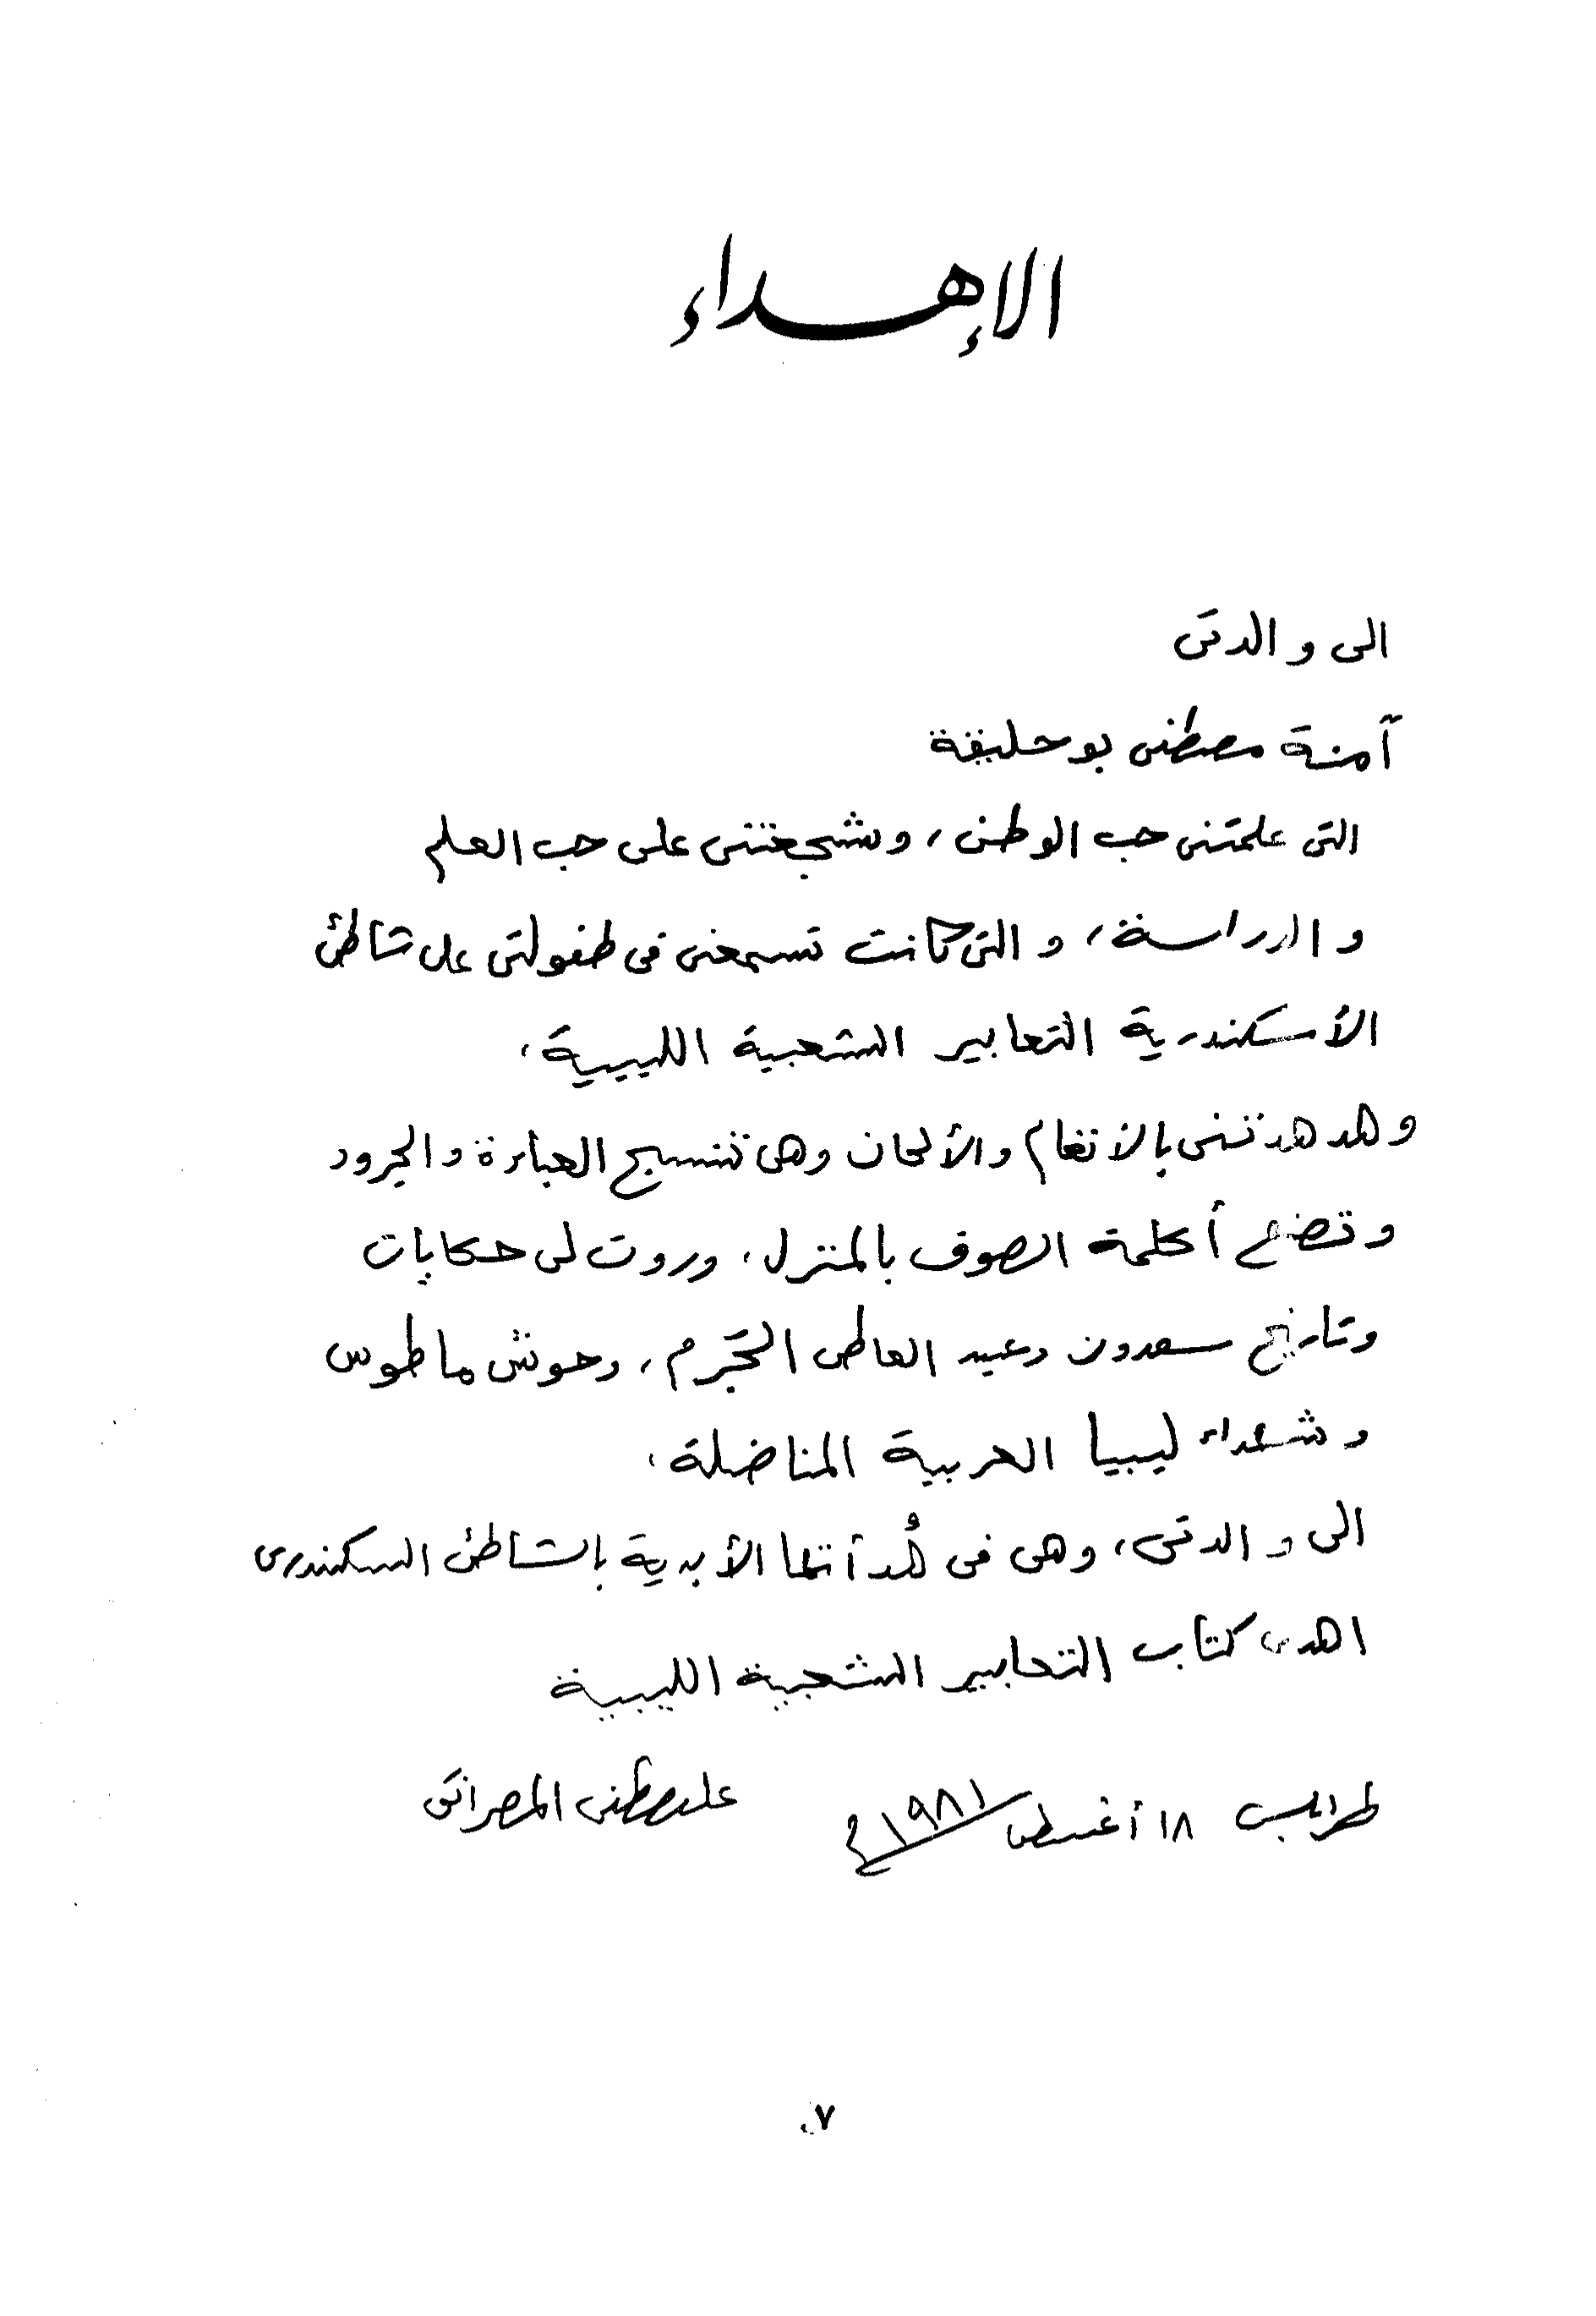 الإهداء
الى والدتى
آمنة مصطفى بو حليقة
التى علمتنى حب الوطن، وشجعتنى على حب العلم
والدراسة، والتى كانت تسمعنى فى طفولتى على شاطئ
الأسكندرية التعابير الشعبية الليبية،
وهدهدتنى بالأنغام والألحان وهى تنسج العباءة والجرود
وتصنع أكلمة الصوف بالمنزل، وروت لى حكايات
وتاريخ سعدون وعبد العاطى الجرم، وحوش ماطوس
وشهداء ليبيا العربية المناضلة،
الى والدتى، وهى فى هُدأتها الأبدية بالشاطئ السكندرى
اهدى كتاب التعابير الشعبية الليبية
طرابلس ١٨ أغسطس ١٩٨١م
على مصطفى المصراتى
٧